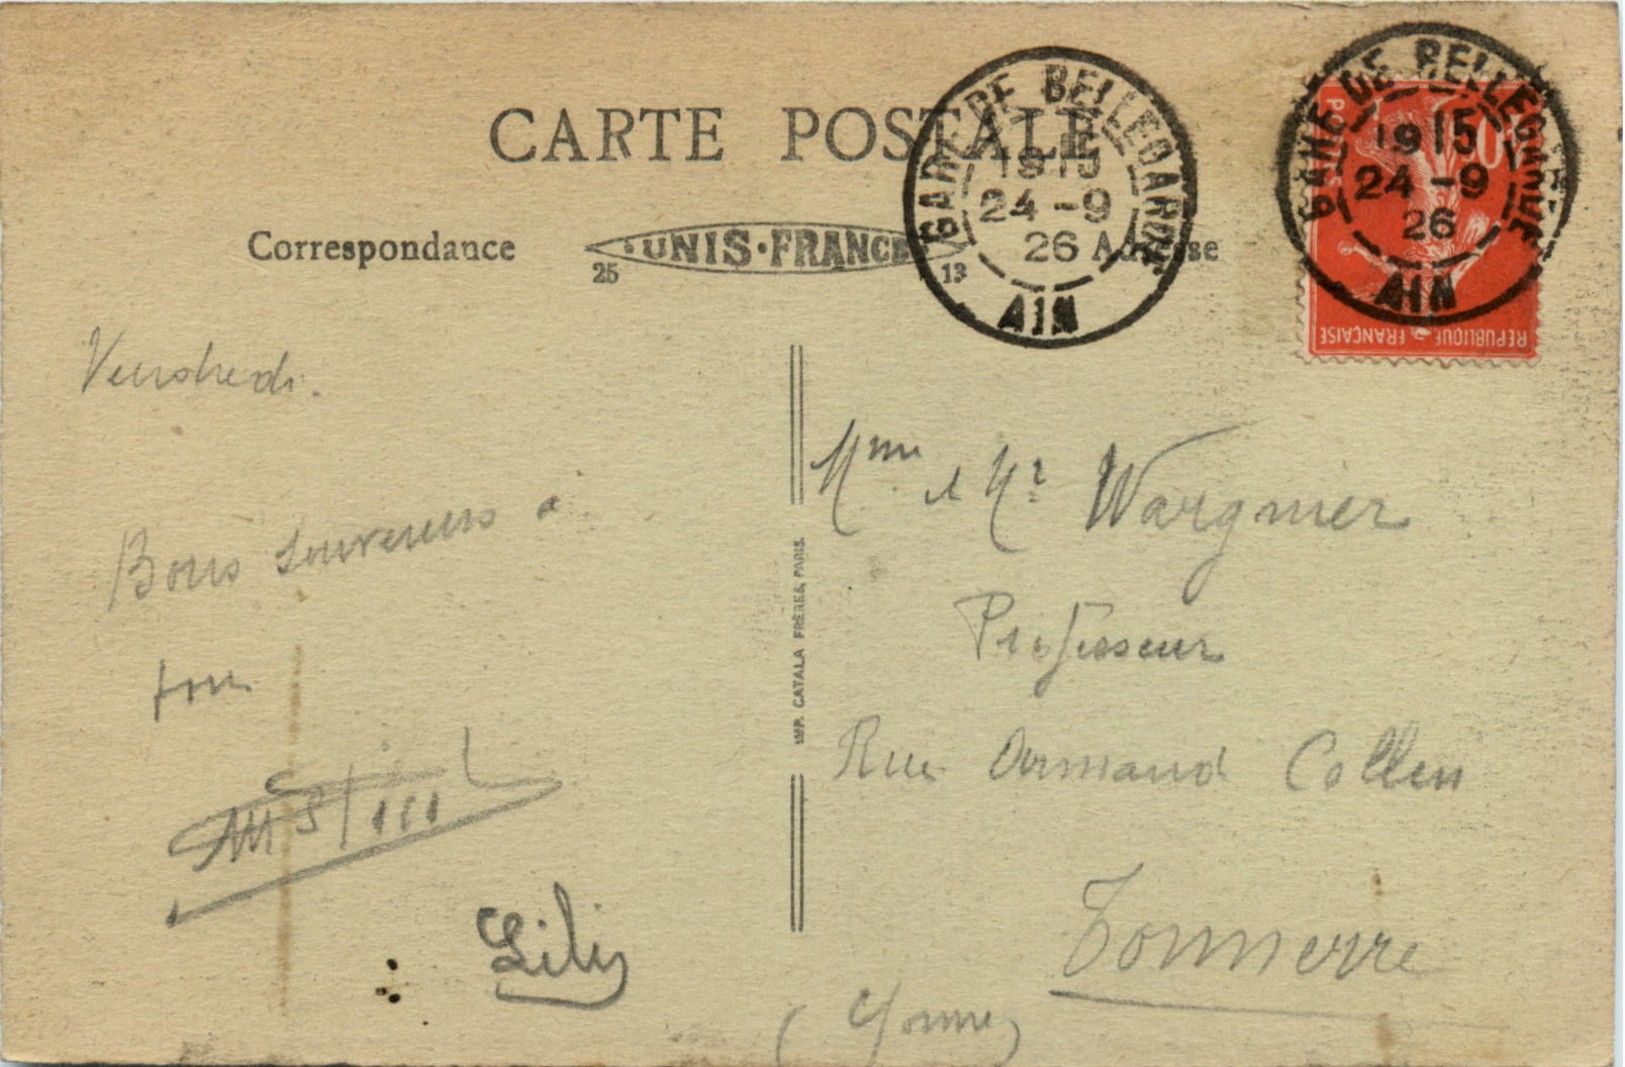 CARTE POSTALE
Correspondance
UNIS-FRANCE
25
13
Adresse
GARE DE BELLEGARDE
1915
24-9
26
AIN
GARE DE BELLEGARDE
1915
24-9
26
AIN
10
POSTES
REPUBLIQUE FRANÇAISE
Vendredi.
Bons souvenirs à
tous
Lily
IMP. CATALA FRÈRES, PARIS.
Mme & Mr Wargnier
Professeur
Rue Armand Collin
Tonnerre
(Yonne)